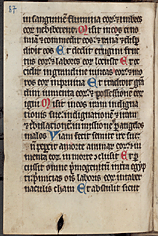 in sanguinem flumina eor et imbres
eor ne biberent Misit in eos cino
mia et comedit eos et rana et disp
didit eos Et dedit erugini fructus
eor et labores eor locuste Et oc
cidit in grandine vineas eor et mo
ros eor in pruina Et tradidit gran
dini iumenta eor et possessione eor
igni Misit in eos iram indigna
tionis sue indignatione et iram
et tribulatione immissione p angelos
malos Viam fecit semite ire sue
n pepercit a morte animar eor et iu
menta eor in morte cclusit Et p
cussit omne pmogenitu terra egypti
pmicias ois labor eor in taber
naculis cham Et abstulit sicut